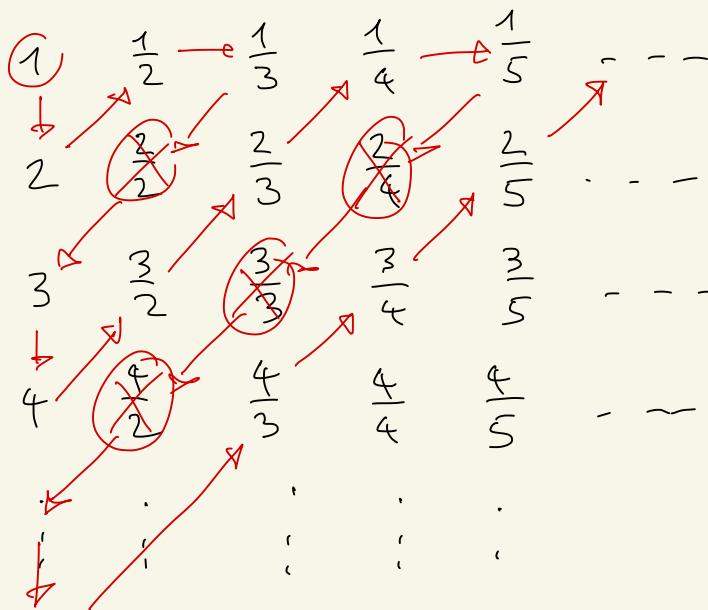 1 1/2 1/3 1/4 1/5 - - -
2 2/2 2/3 2/4 2/5 . - -
3 3/2 3/3 3/4 3/5 - - -
4 4/2 4/3 4/4 4/5 - - -